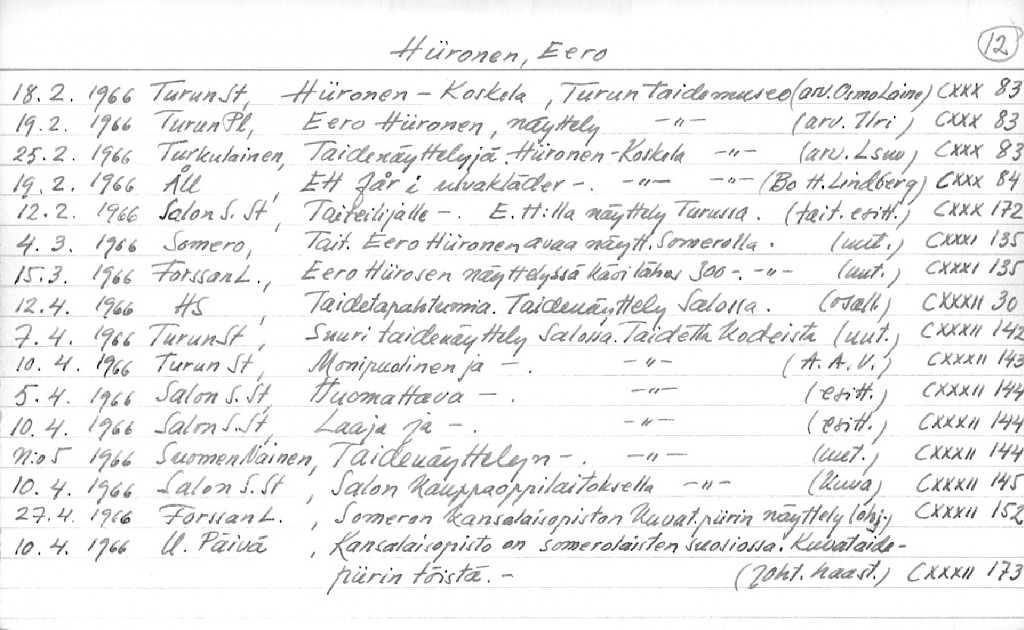 Hiironen, Eero 12
18.2. 1966 Turun St, Hiironen - Koskela, Turun taidemuseo (arv. Osmo Laine) CXXX 83
19.2. 1966 Turun Pl, Eero Hiironen, näyttely -"- (arv. Ilri) CXXX 83
25.2. 1966 Turkulainen, Taidenäyttelyjä. Hiironen-Koskela -"- (arv. Lsuo) CXXX 83
19.2. 1966 ÅU, Ett får i ulvakläder -. -"- -"- (Bo H. Lindberg) CXXX 84
12.2. 1966 Salon S. St, Taiteilijalle -. E. H:lla näyttely Turussa. (tait. esitt.) CXXX 172
4.3. 1966 Somero, Tait. Eero Hiironen avaa näytt. Somerolla. (uut.) CXXXI 135
15.3. 1966 Forssan L., Eero Hiirosen näyttelyssä kävi lähes 300 -. -"- (uut.) CXXXI 135
12.4. 1966 HS, Taidetapahtumia. Taidenäyttely Salossa. (osall.) CXXXII 30
7.4. 1966 Turun St, Suuri taidenäyttely Salossa. Taidetta kodeista (uut.) CXXXII 142
10.4. 1966 Turun St, Monipuolinen ja -. -"- (A. A. V.) CXXXII 143
5.4. 1966 Salon S. St, Huomattava -. -"- (esitt.) CXXXII 144
10.4. 1966 Salon S. St, Laaja ja -. -"- (esitt.) CXXXII 144
N:o 5 1966 Suomen Nainen, Taidenäyttelyn -. -"- (uut.) CXXXII 144
10.4. 1966 Salon S. St, Salon Kauppaoppilaitoksella -"- (kuva) CXXXII 145
27.4. 1966 Forssan L., Someron kansalaisopiston kuvat. piirin näyttely (ohj.) CXXXII 152
10.4. 1966 U. Päivä, Kansalaisopisto on somerolaisten suosiossa. Kuvataide-
piirin töistä. - (joht. haast.) CXXXII 173